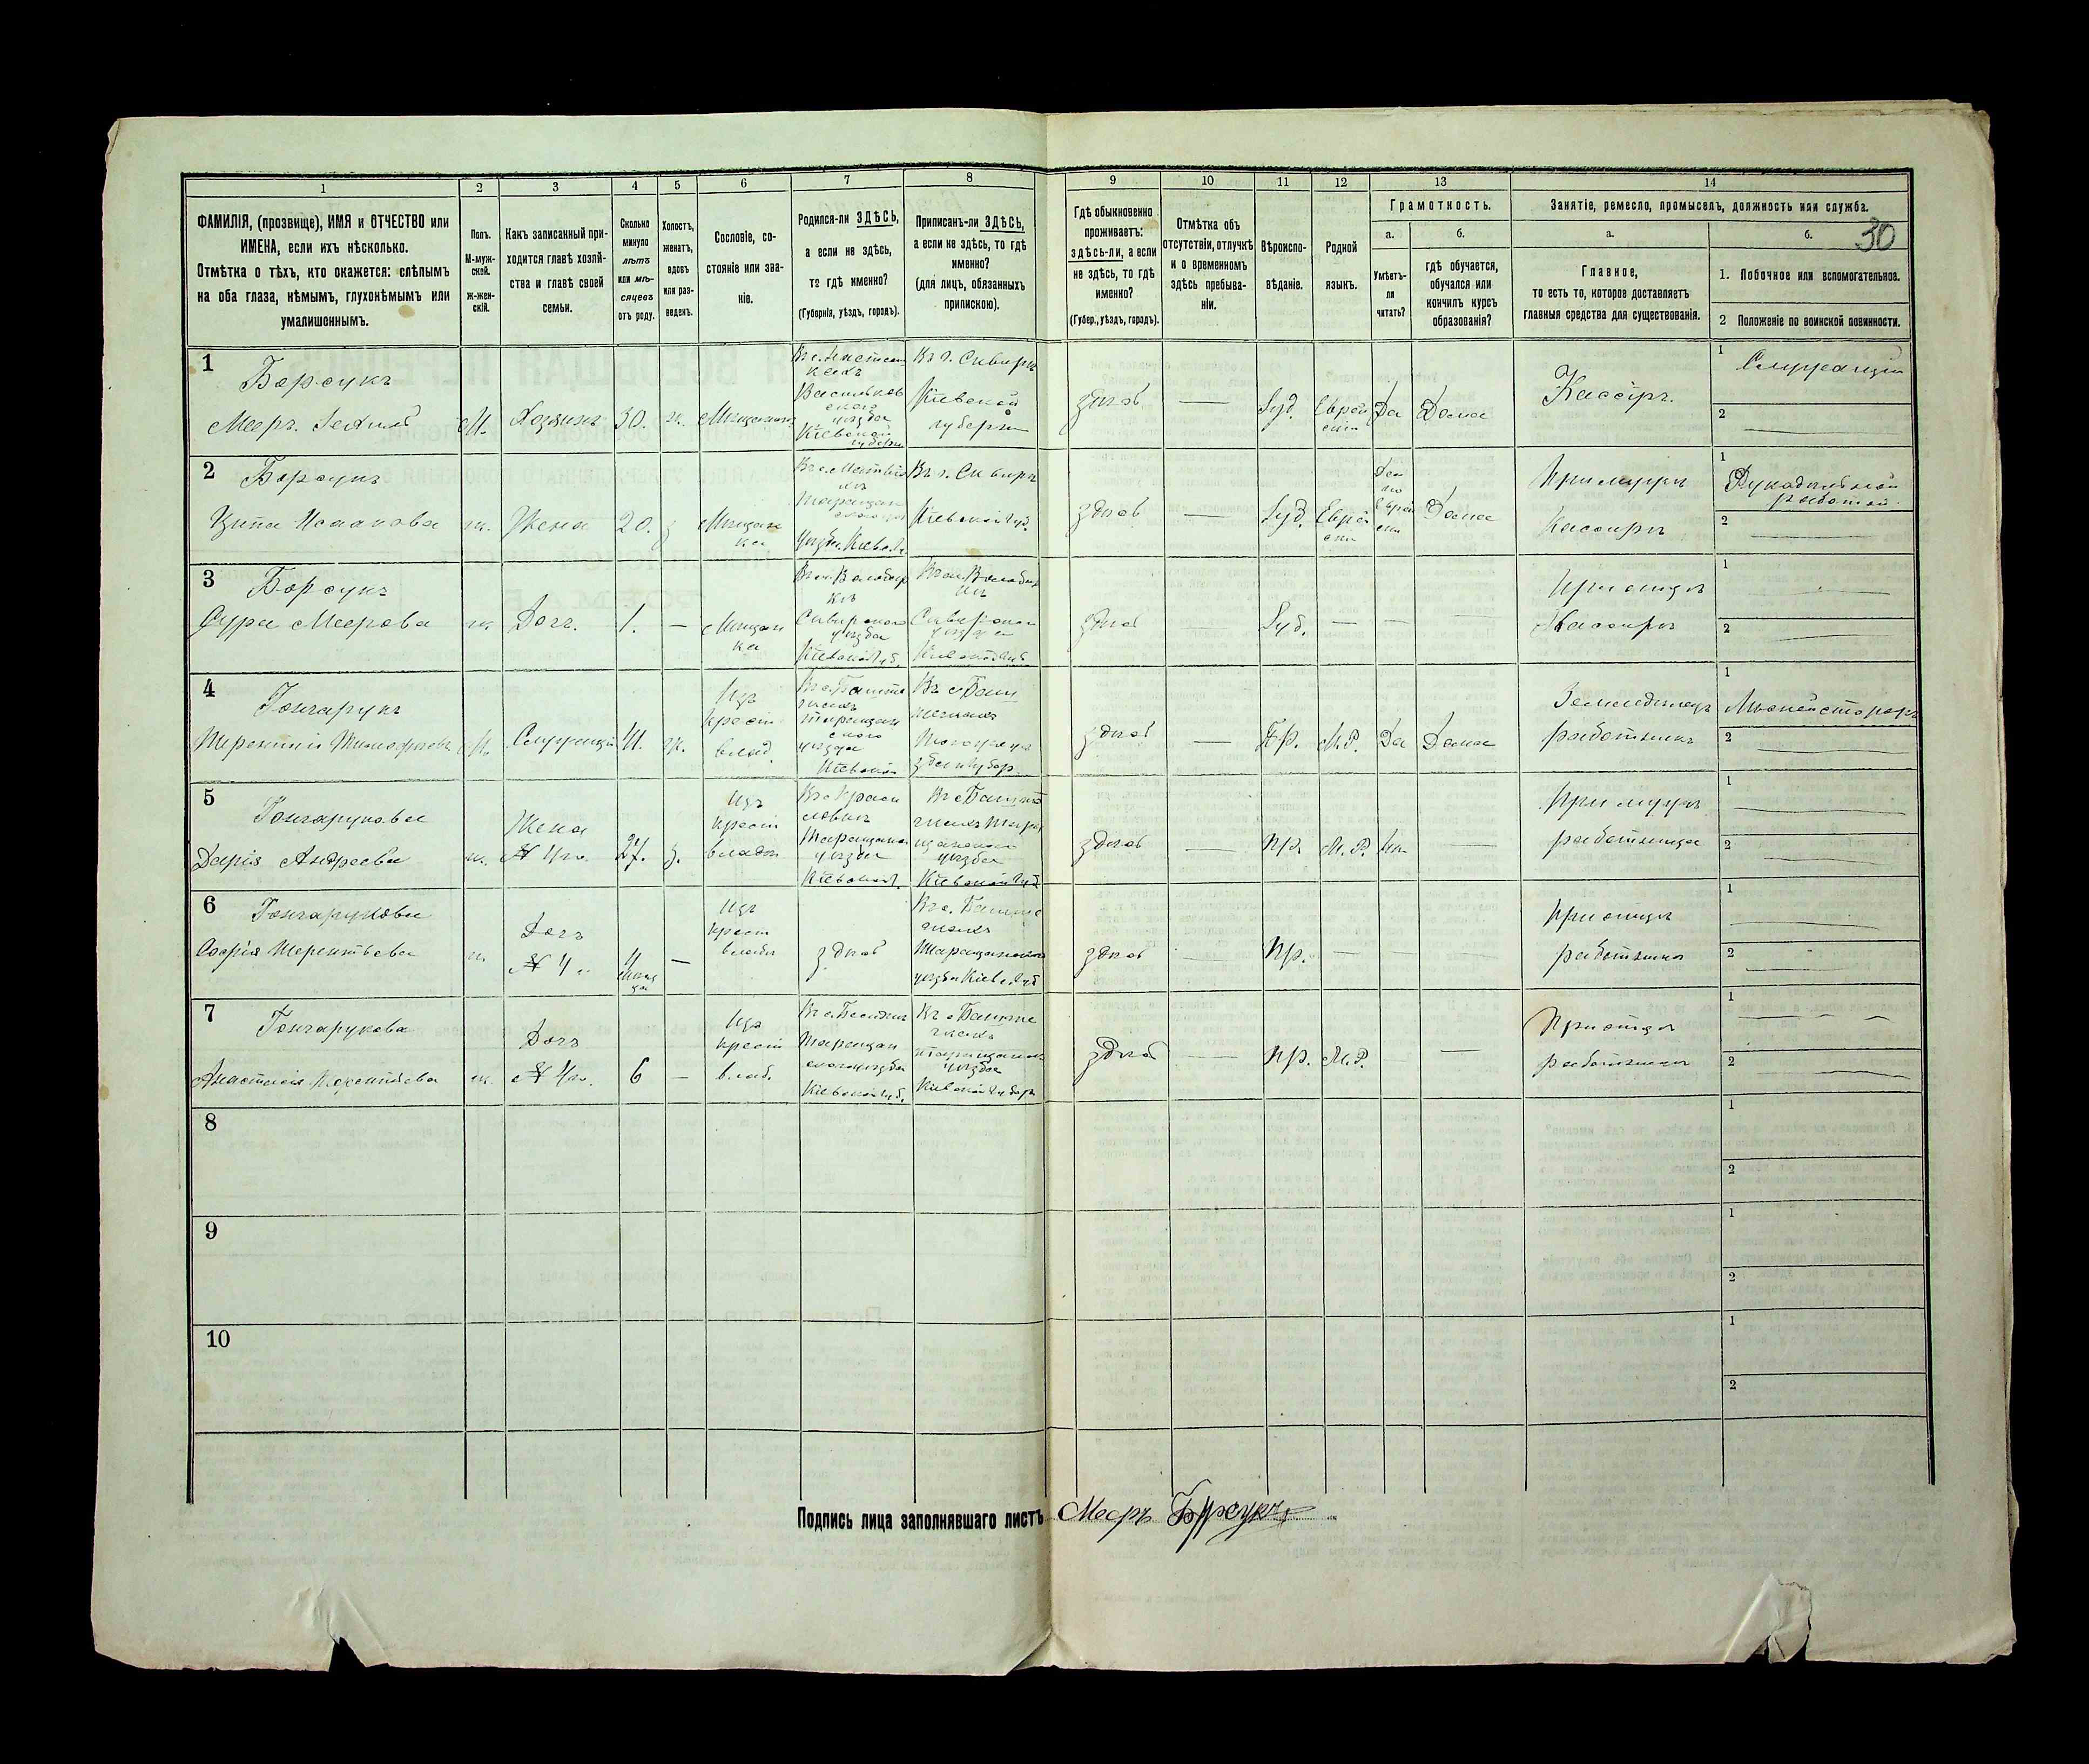 1
2
3
4
5
6
7
8
9
10
11
12
13
14
ФАМИЛІЯ, (прозвище), ИМЯ и ОТЧЕСТВО или
ИМЕНА, если ихъ нѣсколько.
Отмѣтка о тѣхъ, кто окажется: слѣпымъ
на оба глаза, нѣмымъ, глухонѣмымъ или
умалишеннымъ.
Полъ.
М-муж-
ской.
ж-жен-
скій.
Какъ записанный при-
ходится главѣ хозяй-
ства и главѣ своей
семьи.
Сколько
минуло
лѣтъ
или мѣ-
сяцевъ
отъ роду.
Холостъ,
женатъ,
вдовъ
или раз-
веденъ.
Сословіе, со-
стояніе или зва-
ніе.
Родился-ли ЗДѢСЬ,
а если не здѣсь,
то гдѣ именно?
(Губернія, уѣздъ, городъ).
Приписанъ-ли ЗДѢСЬ,
а если не здѣсь, то гдѣ
именно?
(для лицъ, обязанныхъ
припискою).
Гдѣ обыкновенно
проживаетъ:
здѣсь-ли, а если
не здѣсь, то гдѣ
именно?
(Губер., уѣздъ, городъ).
Отмѣтка объ
отсутствіи, отлучкѣ
и о временномъ
здѣсь пребыва-
ніи.
Вѣроиспо-
вѣданіе.
Родной
языкъ.
Грамотность.
а.
Умѣетъ-
ли
читать?
б.
гдѣ обучается,
обучался или
кончилъ курсъ
образованія?
Занятіе, ремесло, промыселъ, должность или служба.
а.
Главное,
то есть то, которое доставляетъ
главныя средства для существованія.
б.
30
1. Побочное или вспомогательное.
2 Положеніе по воинской повинности.
1
Борсукъ
Мееръ
М.
Хозяинъ
30.
ж.
Васильков
ского
уѣзда
Кіевской
губерн
Въ г. Сквирѣ
Кіевской
губерн
здѣсь
Іуд.
Еврей
скій
Да
Дома
Кассиръ.
1
Служащій
2
2
Борсукъ
Ципа Исаакова
ж.
Жена
20.
з
Мѣщан
ка
Въ г. Сквирѣ
Кіевской Губ.
здѣсь
Іуд.
Еврей
ски
Дома
При мужѣ
Кассирѣ
1
Рукодѣльной
работой.
2
3
Борсукъ
Сура Меерова
ж.
Дочь.
1.
Мѣщан
ка
Сквирского
уѣзда
Кіевской Губ.
Сквирского
уѣзда
Кіевской Губ
здѣсь
Іуд.
При отцѣ
Кассирѣ
1
2
4
Гончарукъ
Терентій Тимофѣевъ
М.
Служащій
41.
ж.
Изъ
крест
влад.
уѣзда
Кіевской
здѣсь
Пр.
М.Р.
Да
Дома
Земледѣлецъ
работникъ
1
2
5
Гончарукова
Дарія Андреева
ж.
Жена
№ 4го.
27.
з.
Изъ
крест
владѣ
уѣзда
Кіевской Г.
уѣзда
Кіевской Губ
здѣсь
Пр.
М.Р.
При мужѣ
работница
1
2
6
Гончарукова
Софія Терентьева
ж.
Дочь
№ 4
4
мѣся
ца
Изъ
крест
владѣ
здѣсь
Таращанского
уѣзда Кіев. Губ
здѣсь
Пр.
При отцѣ
работника
1
2
7
Гончарукова
Анастасія Терентьева
ж.
Дочь
№ 4го.
6
Изъ
крест
влад.
Таращан
ского уѣзда
Кіевской Губ.
уѣзда
Кіевской Губер
здѣсь
Пр.
М.Р.
При отцѣ
работника
1
2
8
1
2
9
1
2
10
1
2
Подпись лица заполнявшаго листъ Мееръ Борсукъ